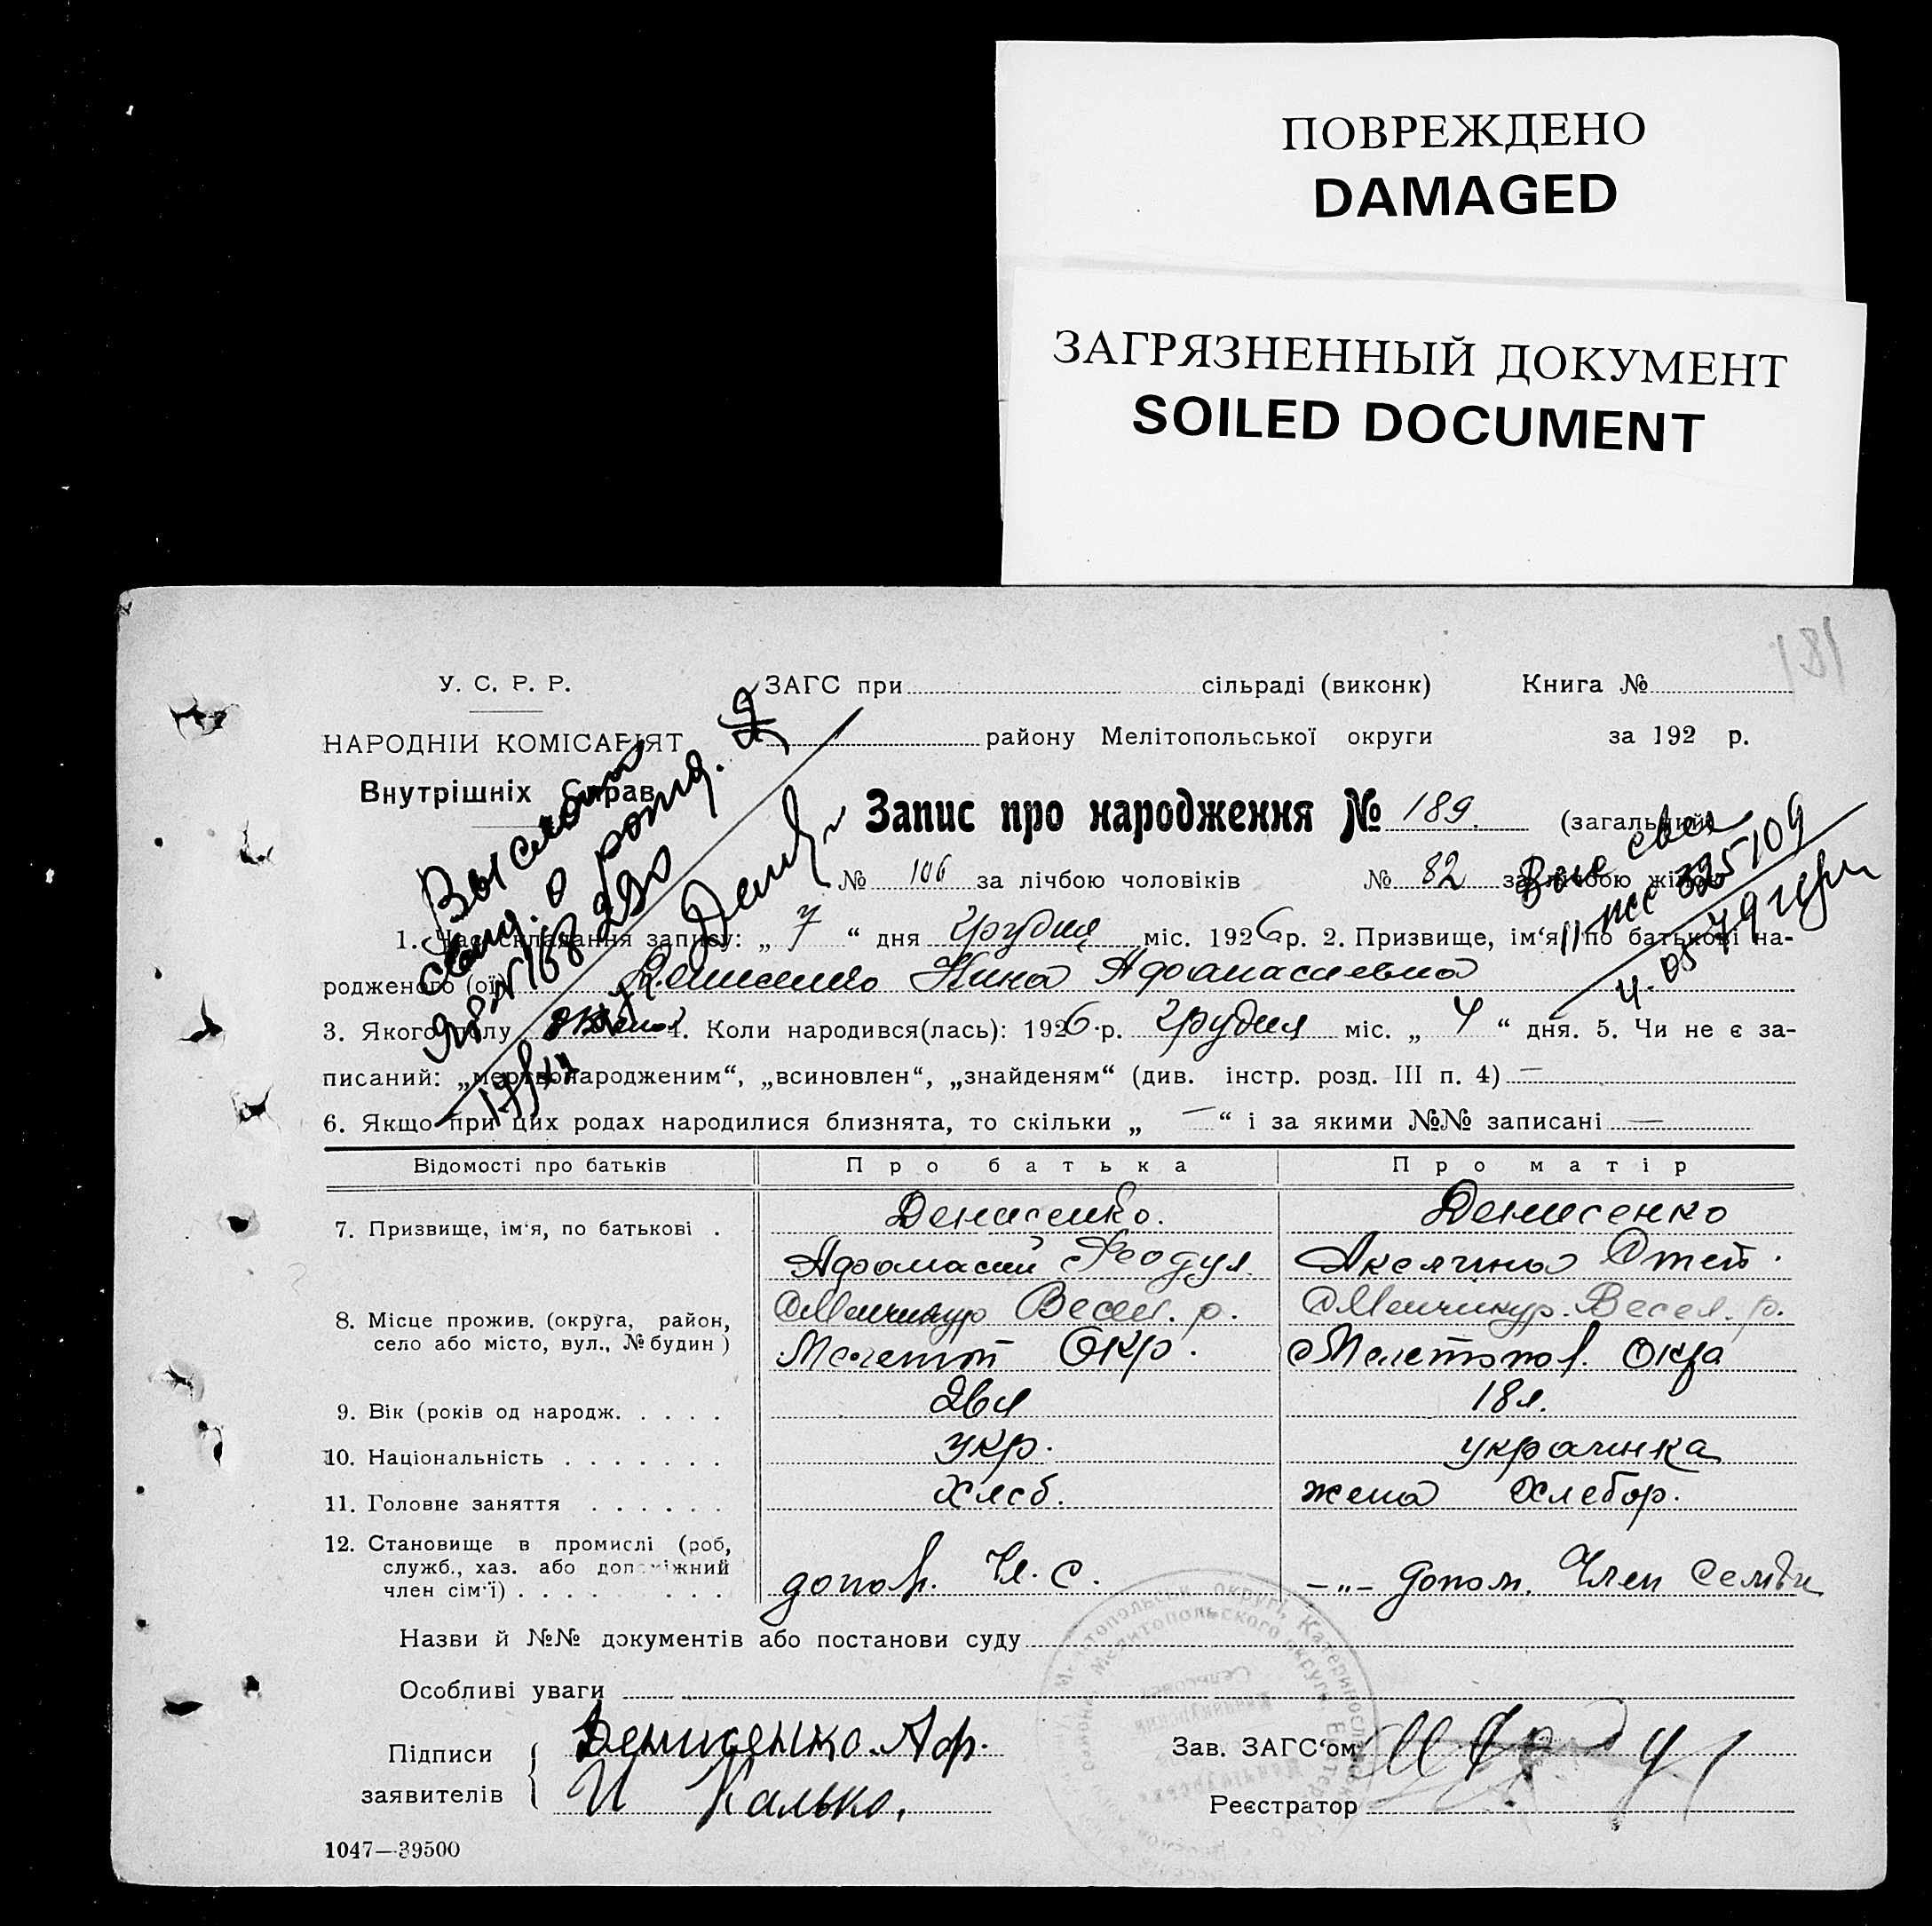 ПОВРЕЖДЕНО
DAMAGED
ЗАГРЯЗНЕННЫЙ ДОКУМЕНТ
SOILED DOCUMENT
181
У. С. Р. Р. ЗАГС при сільраді (виконк) Книга №
НАРОДНІЙ КОМІСАРІЯТ району Мелітопольської округи за 192 р.
Внутрішніх Справ
Запис про народження № 189. (загальний)
№ 106 за лічбою чоловіків № 82 за лічбою жінок
1. Час складання запису: „ 7 “ дня Грудня міс. 1926 р. 2. Призвище, ім‘я, по батькові на-
родженого (ої) Денисенко Нина Афанасиевна
3. Якого полу 4. Коли народився(лась): 1926 р. Грудня міс. „ 4 “ дня. 5. Чи не є за-
писаний: „мертвонародженим“, „всиновлен“, „знайденям“ (див. інстр. розд. III п. 4) —
6. Якщо при цих родах народилися близнята, то скільки „ — “ і за якими №№ записані —
Выслат
свид. о рожд.
ЯР № 168290
Відомості про батьків Про батька Про матір
7. Призвище, ім‘я, по батькові . Денисенко. Денисенко
Афонасий Феодул. Аксягина
8. Місце прожив. (округа, район, село або місто, вул., № будин) Менчикур Весел. р. Менчикур. Весел. р.
Мелетоп Окр. Мелетопол. Окра
9. Вік (років од народж. . . . . 26 л 18 л.
10. Національність . . . . . . . укр. украинка
11. Головне заняття . . . . . . хлеб. жена хлебор.
12. Становище в промислі (роб, служб., хаз. або допоміжний член сім‘ї) . . . . . . . . . допом. Чл. с. —„— допом. Член семьи
Назви й №№ документів або постанови суду
Особливі уваги
Підписи заявителів { Денисенко. Аф. Зав. ЗАГС‘ом
И Калько. Реєстратор
1047—39500